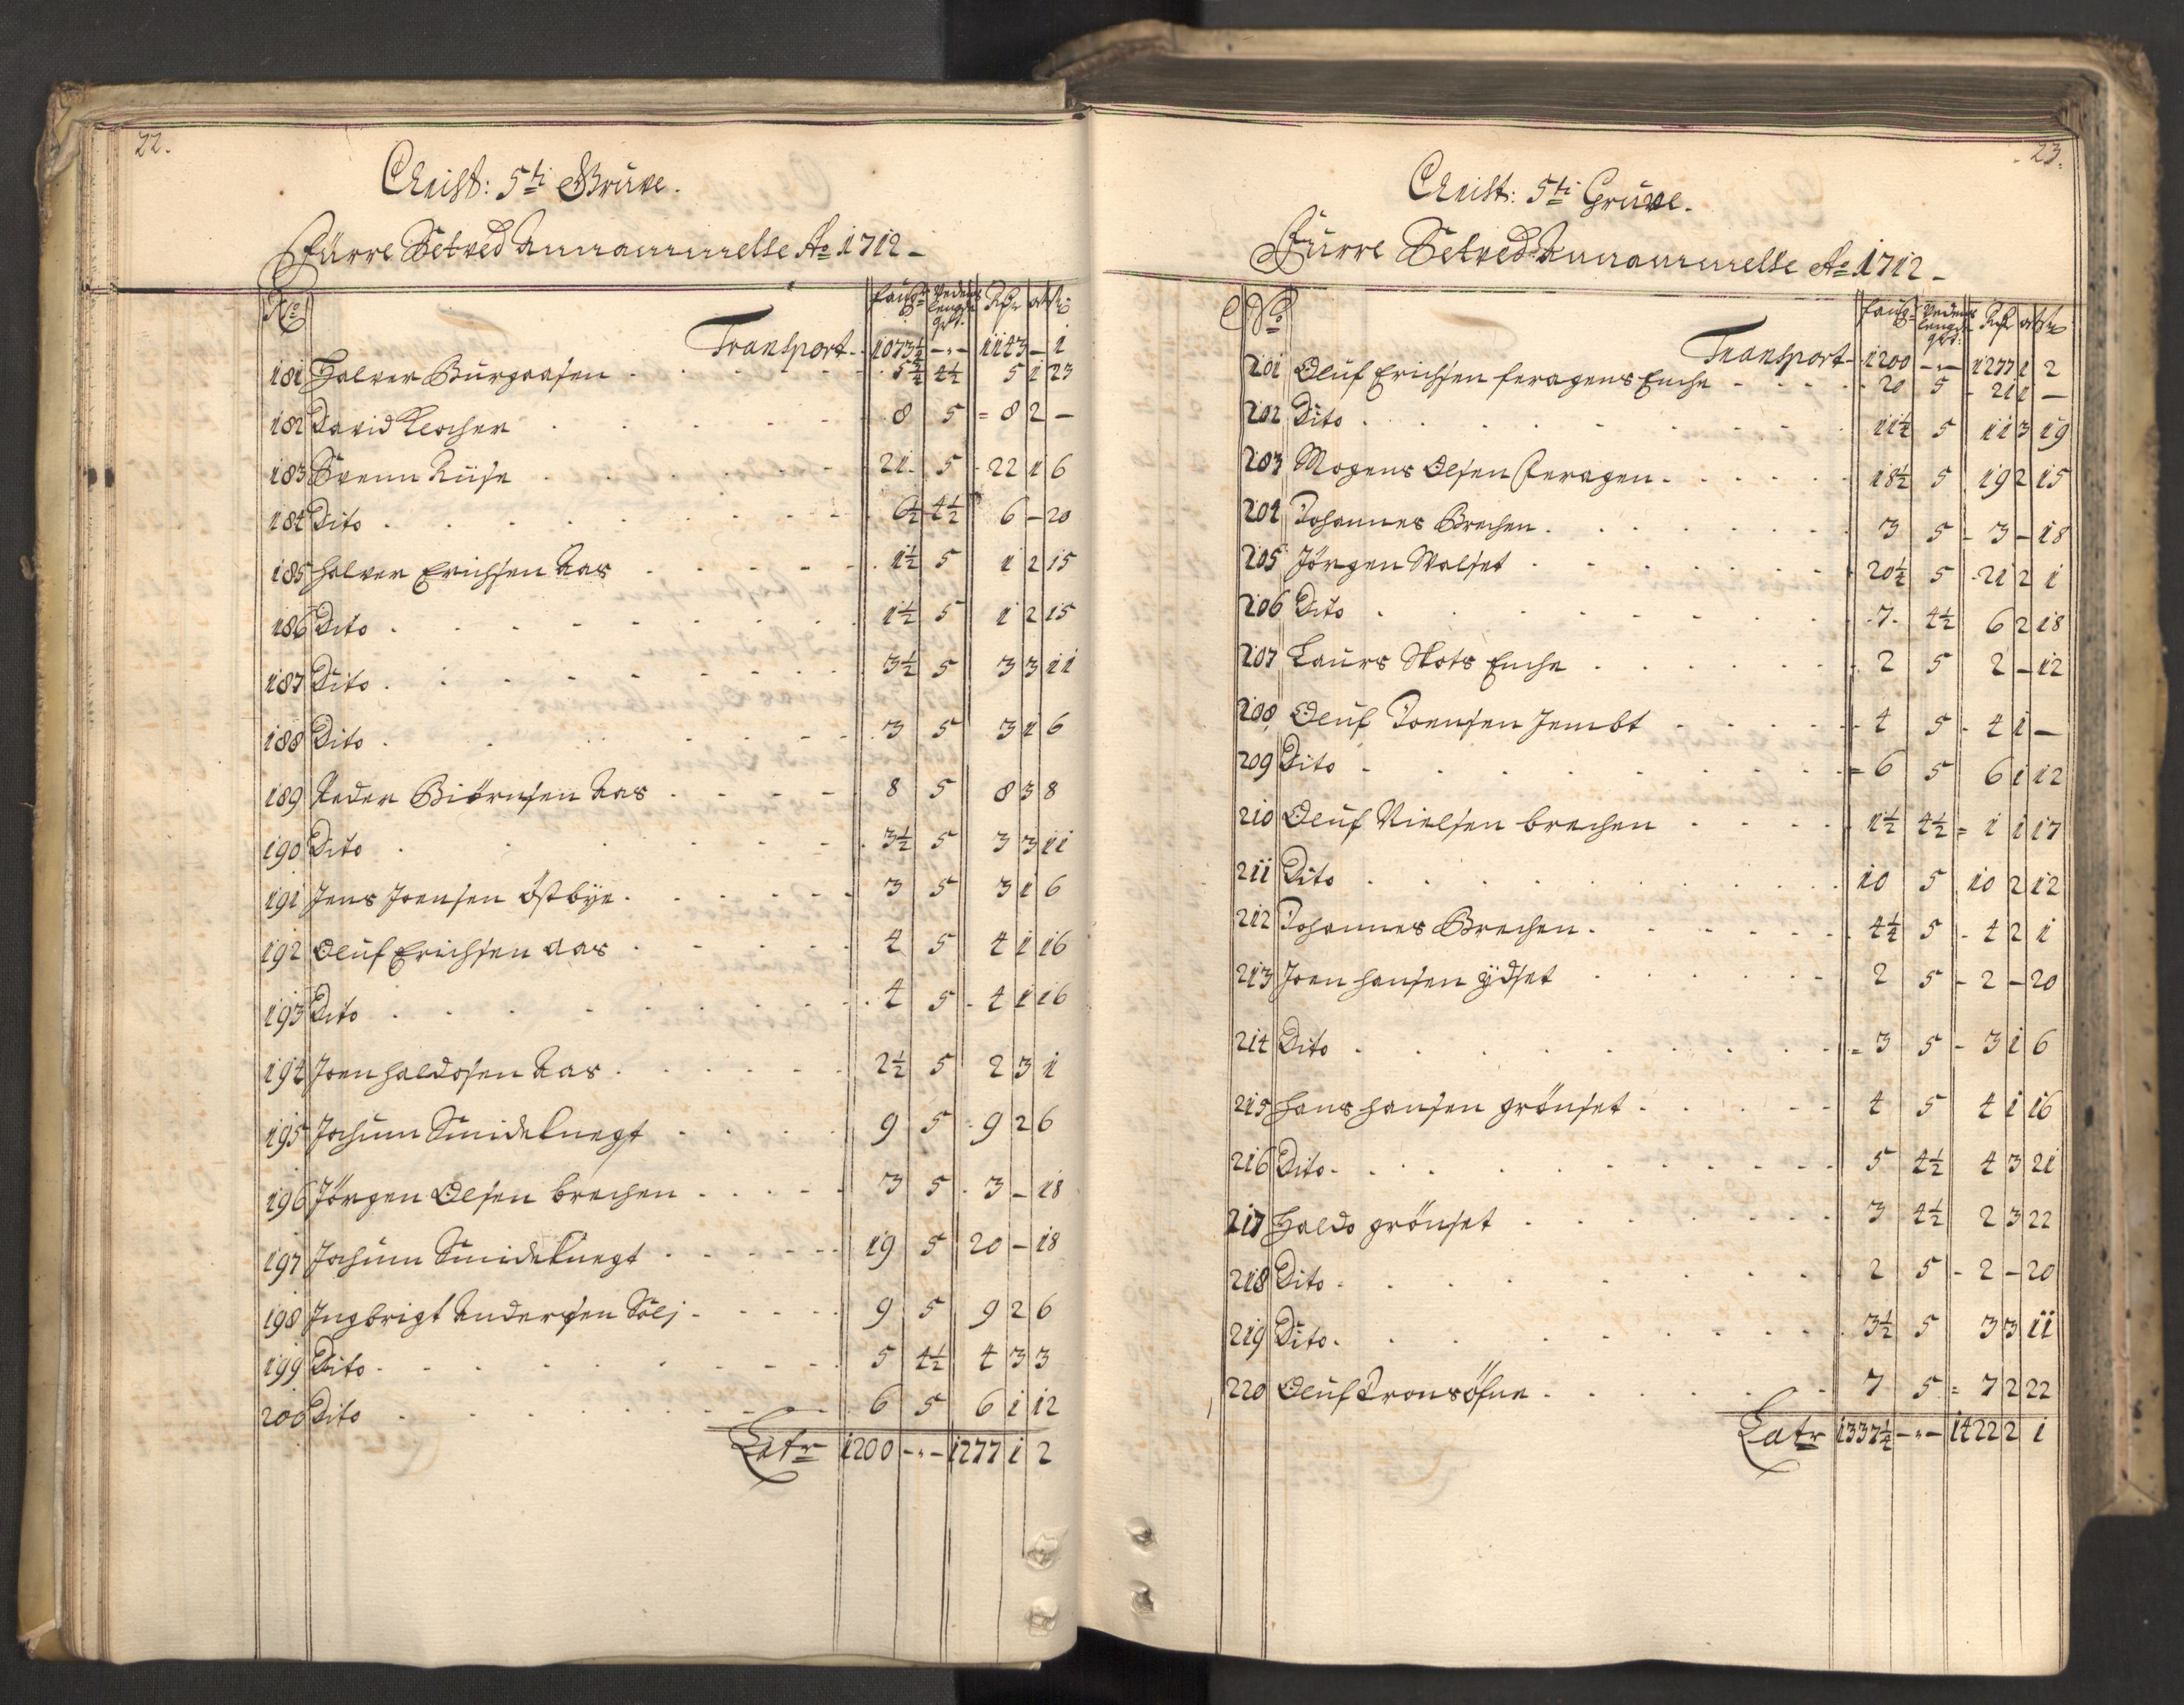 22.
Christ: 5ti Gruve.
Fürre Setved Annammelse Ao 1712 –
No fauŋ Vedens lengde qrt. Rdr ort s
Transport 1073½ –„– 1143 – 1
181 Halver Bürgaasen 5½ 4½ 5 1 23
182 David Klocher 8 5 8 2 –
183 Svenn Ruse 21 5 22 1 6
184 Dito 6½ 4½ 6 – 20
185 Halver Erichsen Aas 1½ 5 1 2 15
186 Dito 1½ 5 1 2 15
187 Dito 3½ 5 3 3 11
188 Dito 3 5 3 1 6
189 Peder Biörnsen Aas 8 5 8 3 8
190 Dito 3½ 5 3 3 11
191 Jens Joensen Östbÿe 3 5 3 1 6
192 Oluf Erichsen Aas 4 5 4 1 16
193 Dito 4 5 4 1 16
194 Joen Haldosen Aas 2½ 5 2 3 1
195 Jochum Smideknegt 9 5 9 2 6
196 Jörgen Olsen brechen 3 5 3 – 18
197 Jochum Smideknegt 19 5 20 – 18
198 Ingbrigt Andersen Sölj 9 5 9 2 6
199 Dito 5 4½ 4 3 3
200 Dito 6 5 6 1 12
Latr 1200 –„– 1277 1 2
23.
Christ: 5ti Gruve.
Fürre Setved Annammelse Ao 1712 –
No fauŋ Vedens lengde qrt. Rdr ort s
Transport 1200 –„– 1277 1 2
201 Oluf Erichsen feragens Enche 20 5 21 1 –
202 Dito 11½ 5 11 3 19
203 Mogens Olsen Feragen 18½ 5 19 2 15
204 Johannes Brechen 3 5 3 – 18
205 Jörgen Walset 20¼ 5 21 2 1
206 Dito 7 4½ 6 2 18
207 Laurs Skots Enche 2 5 2 – 12
208 Oluf Joensen Jembt 4 5 4 1 –
209 Dito 6 5 6 1 12
210 Oluf Nielsen brechen 1½ 4½ 1 1 17
211 Dito 10 5 10 2 12
212 Johannes Brechen 4¼ 5 4 2 1
213 Joen Hansen ÿdset 2 5 2 – 20
214 Dito 3 5 3 1 6
215 Hans Hansen grönset 4 5 4 1 16
216 Dito 5 4½ 4 3 21
217 Haldo grönset 3 4½ 2 3 22
218 Dito 2 5 2 – 20
219 Dito 3½ 5 3 3 11
220 Oluf Tronsöfne 7 5 7 2 22
Latr 1337¼ –„– 1422 2 1